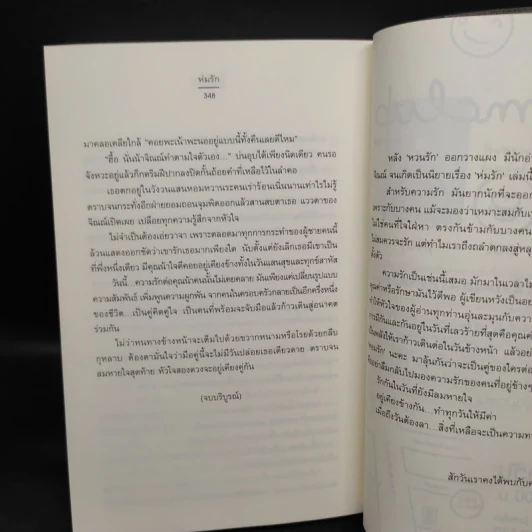 ห่มรัก
348
มาคลอเคลียใกล้ "คอยพะเน้าพะนออยู่แบบนี้ทั้งคืนเลยดีไหม"
"อื้อ นั่นน้าจิณณ์ทำตามใจตัวเอง..." บ่นอุบได้เพียงนิดเดียว คนรอ
จังหวะอยู่แล้วก็กดริมฝีปากลงปิดกั้นถ้อยคำที่เหลือไว้ในลำคอ
เธอตกอยู่ในวังวนแสนหอมหวานระคนเร่าร้อนเนิ่นนานเท่าไรไม่รู้
ตราบจนกระทั่งอีกฝ่ายยอมถอนจุมพิตออกแล้วสานสบตาเธอ แววตาของ
จิณณ์เปิดเผย เปลือยทุกความรู้สึกจากหัวใจ
ไม่จำเป็นต้องเอ่ยวาจา เพราะตลอดมาทุกการกระทำของผู้ชายคนนี้
ล้วนแสดงออกชัดว่าเขารักเธอมากเพียงใด นับตั้งแต่ยังเล็กเธอมีเขาเป็น
ที่พึ่งหนึ่งเดียว มีคุณน้าใจดีคอยอยู่เคียงข้างทั้งในวันแสนสุขและทุกข์สาหัส
วันนี้...ความรักต่อคุณน้าคนนั้นไม่เคยคลาย มันเพียงแค่เปลี่ยนรูปแบบ
ความสัมพันธ์ เพิ่มพูนความผูกพัน จากคนในครอบครัวกลายเป็นอีกครึ่งหนึ่ง
ของชีวิต...เป็นคู่คิดคู่ใจ เป็นคนที่พร้อมจะจับมือแล้วก้าวเดินสู่อนาคต
ร่วมกัน
ไม่ว่าหนทางข้างหน้าจะเต็มไปด้วยขวากหนามหรือโรยด้วยกลีบ
กุหลาบ ต้องตามั่นใจว่ามือคู่นี้จะไม่มีวันปล่อยเธอเดียวดาย ตราบจน
ลมหายใจสุดท้าย หัวใจสองดวงจะอยู่เคียงคู่กัน
(จบบริบูรณ์)
หลัง 'หวนรัก' ออกวางแผง มีนักอ่
จิณณ์ จนเกิดเป็นนิยายเรื่อง 'ห่มรัก' เล่มนี้
สำหรับความรัก มันยากนักที่จะออก
ตรงกับบางคน แม้จะมองว่าเหมาะสมกับเ
ไม่ใช่คนที่ใจใฝ่หา ตรงข้ามกับบางคน
ไม่สมควรจะรัก แต่ทำไมเราถึงถลำตกลงสู่หลุ
ความรักเป็นเช่นนี้เสมอ มักมาในเวลาไม
คุณค่าหรือรักษามันไว้ดีพอ ผู้เขียนหวังเป็นอย่
ทำให้หัวใจของผู้อ่านทุกท่านอุ่นละมุนกับความ
รักกันในวันที่ยังมีลมหายใจ
อยู่เคียงข้างกัน...ทำทุกวันให้มีค่า
เมื่อถึงวันต้องลา...สิ่งที่เหลือจะเป็นความท
สักวันเราคงได้พบกับค